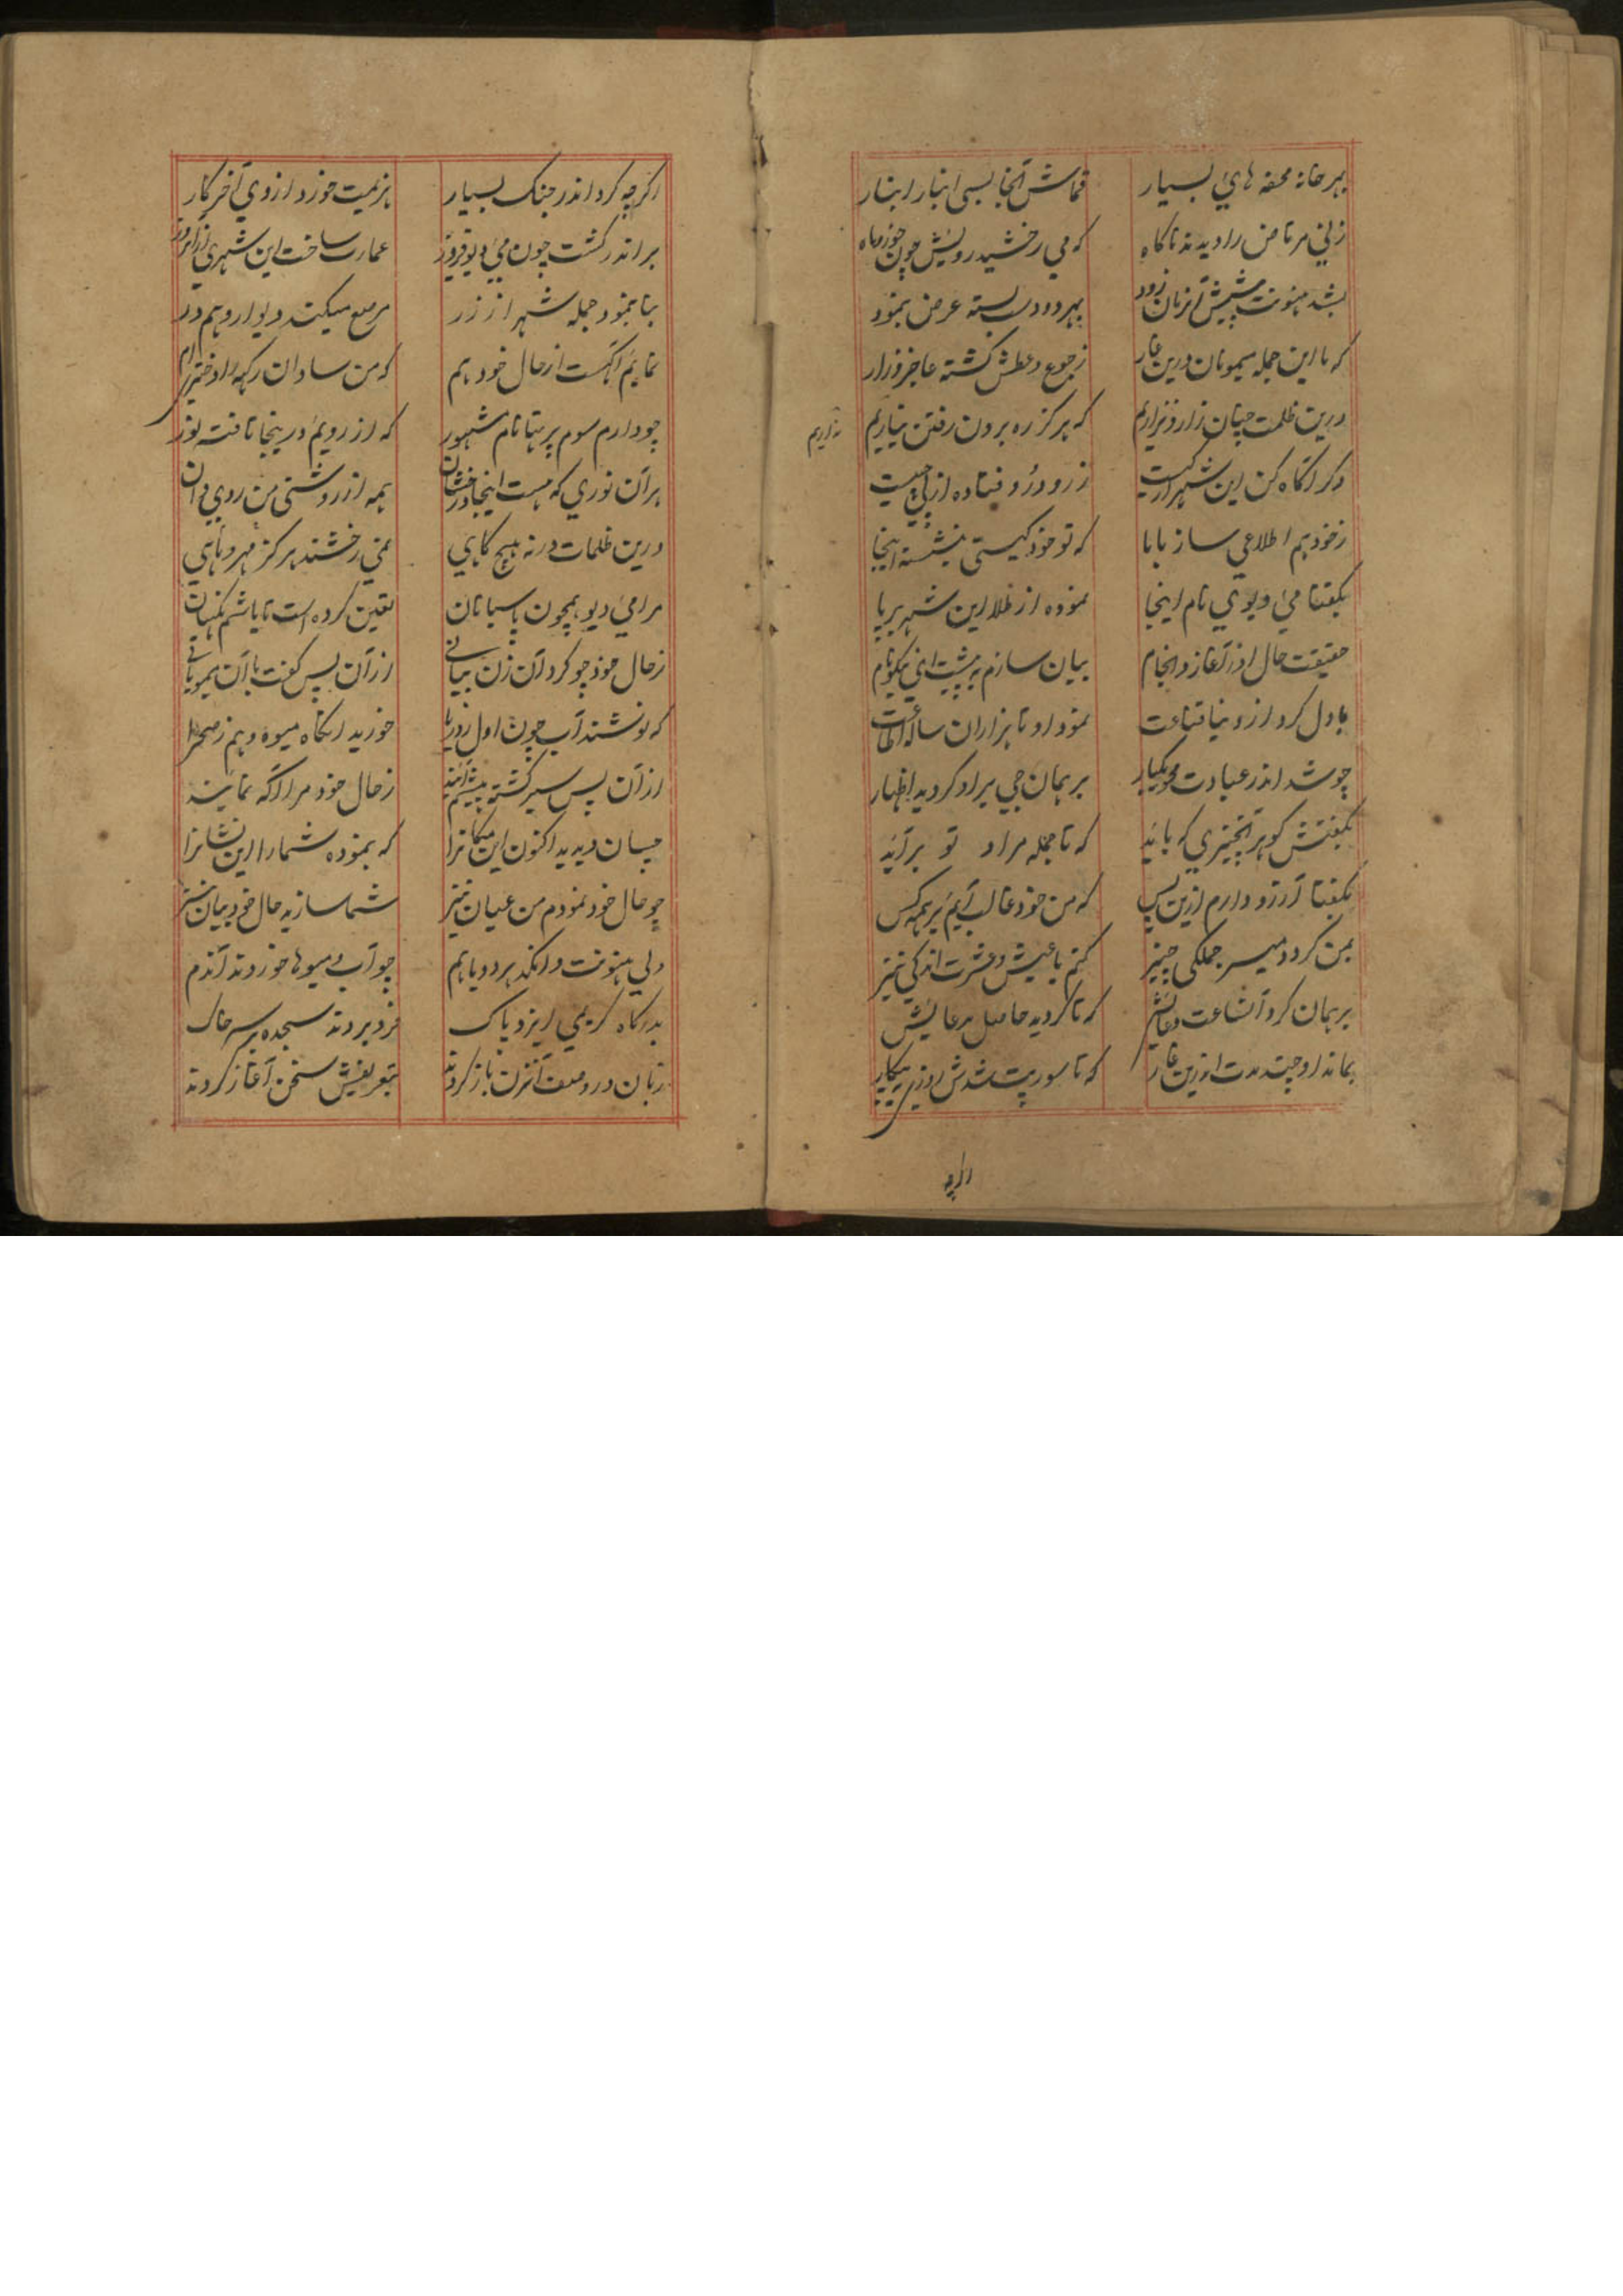 بهر خانه محفه های بسیار
قماش آنجا بسی انبار انبار
زنی مرتاض را دیدند ناکاه
که می رخشید رویش چون خور و ماه
بشد هنونت پیشش آنزمان زود
بهر دو دست بسته عرض بنمود
که با این جمله میمونان درین غار
ز جوع و عطش کشته عاجز و زار
درین ظلمت چنان زار و نزاریم
که هرکز ره برون رفتن نیاریم
نداریم
دکر آکاه کن این شهر از کیست
ز زود رو فتاده از پی چیست
ز خود هم اطلاعی ساز با ما
که تو خود کیستی بنشسته اینجا
بکفتا می دیوی نام اینجا
نموده از طلا این شهر بر پا
حقیقت حال او ز آغاز و انجام
بیان سازم به پیشت ای نکونام
بادل کرد از دنیا قناعت
نمود او تا هزاران ساله طاعت
چو شد اندر عبادت محو یکبار
برهمان جی برو کردید اظهار
بکفتش کو هر آنچیزی که باید
که تا جمله مراد تو برآید
بکفتا آرزو دارم ازین پس
که من خود غالب آیم بر همه کس
بمن کردد میسر جملکی چیز
کنم با عیش و عشرت اندکی نیز
برهمان کرد آنساعت دعایش
که تا کردید حاصل مدعایش
بماند او چند مدت اندرین غار
که تا سورپت شدش روزی به پیکار
اکرچه
اکرچه کرد اندر جنک بسیار
هزیمت خورد از وی آخر کار
بر اندر کشت چون می دیو فیروز
عمارت ساخت این شهری از آنروز
بنا بنمود جمله شهر از زر
مرصع میکند دیوار و هم در
نمایم آکهت از حال خود هم
که من ساوان رکهه را دختر ام
چو دارم سوم پربتا نام مشهور
که از رویم در ینجا تافته نور
بر آن نوری که هست اینجا درخشان
همه از روشنی من روی دان
درین ظلمات ورنه هیچ کاهی
نمی رخشند هرکز مهر و ماهی
مرا می دیو همچون پاسبانان
تعین کرده است تا باشم نکهبان
ز حال خود چو کرد آن زن بیانی
از آن پس کفت با آن میمونانی
که نوشند آب چون اول ز دریا
خورید آنکاه میوه و هم ز صحرا
از آن پس سیر کشته پیشم آئید
ز حال خود مرا آکه نمائید
چسان دیدید اکنون این مکانرا
که بنموده شما را این نشانرا
چو حال خود نمودم من عیان نیز
شما سازید حال خود بیان نیز
ولی هنونت و انکد هر دو با هم
چو آب و میوها خوردند آندم
بدرکاه کریمی ایزد پاک
فرو بردند سجده بر سر خاک
زبان در وصف آنزن باز کردند
بتعریفش سخن آغاز کردند